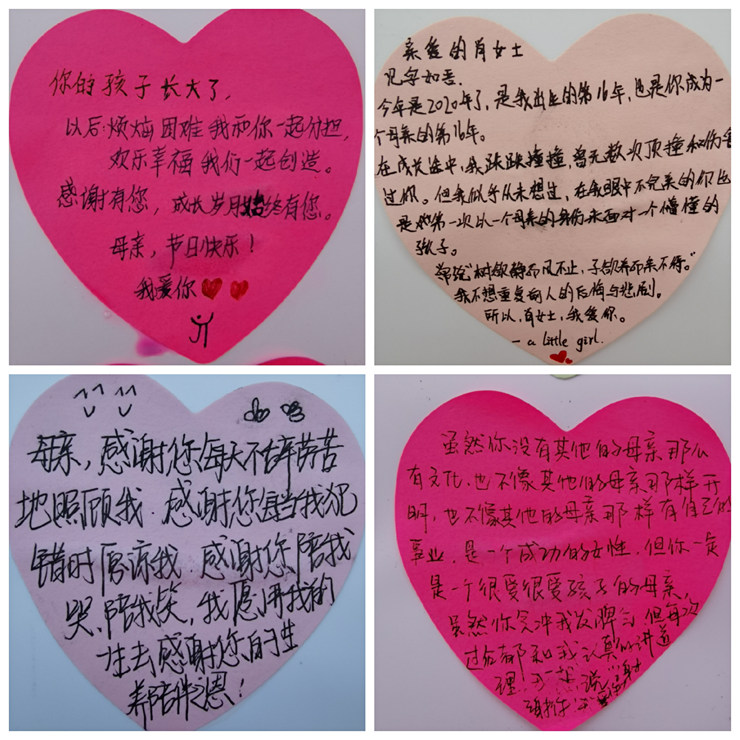 你的孩子长大了，
以后烦恼困难我和你一起分担，
欢乐幸福我们一起创造。
感谢有您，成长岁月始终有您。
母亲，节日快乐！
我爱你
亲爱的肖女士
见字如晤。
今年是2020年了，是我出生的第16年，也是你成为一
个母亲的第16年。
在成长途中，我跌跌撞撞，曾无数次顶撞和伤害
过你。但我似乎从未想过，在我眼中不完美的你也
是她第一次以一个母亲的身份来面对一个懵懂的
孩子。
常说“树欲静而风不止，子欲养而亲不待。”
我不想重复前人的后悔与悲剧。
所以，肖女士，我爱你。
— a little girl.
母亲，感谢您每天不辞劳苦
地照顾我．感谢您每当我犯
错时原谅我．感谢您陪我
哭．陪我笑，我愿用我的
生去感谢您的生
养陪伴之恩！
虽然你没有其他的母亲那么
有文化，也不像其他的母亲那样开
明，也不像其他的母亲那样有自己的
事业，是一个成功的女性，但你一定
是一个很爱很爱孩子的母亲，
虽然你总冲我发脾气，但每次
过后都和我认真的讲道
理，我想说，谢
谢你